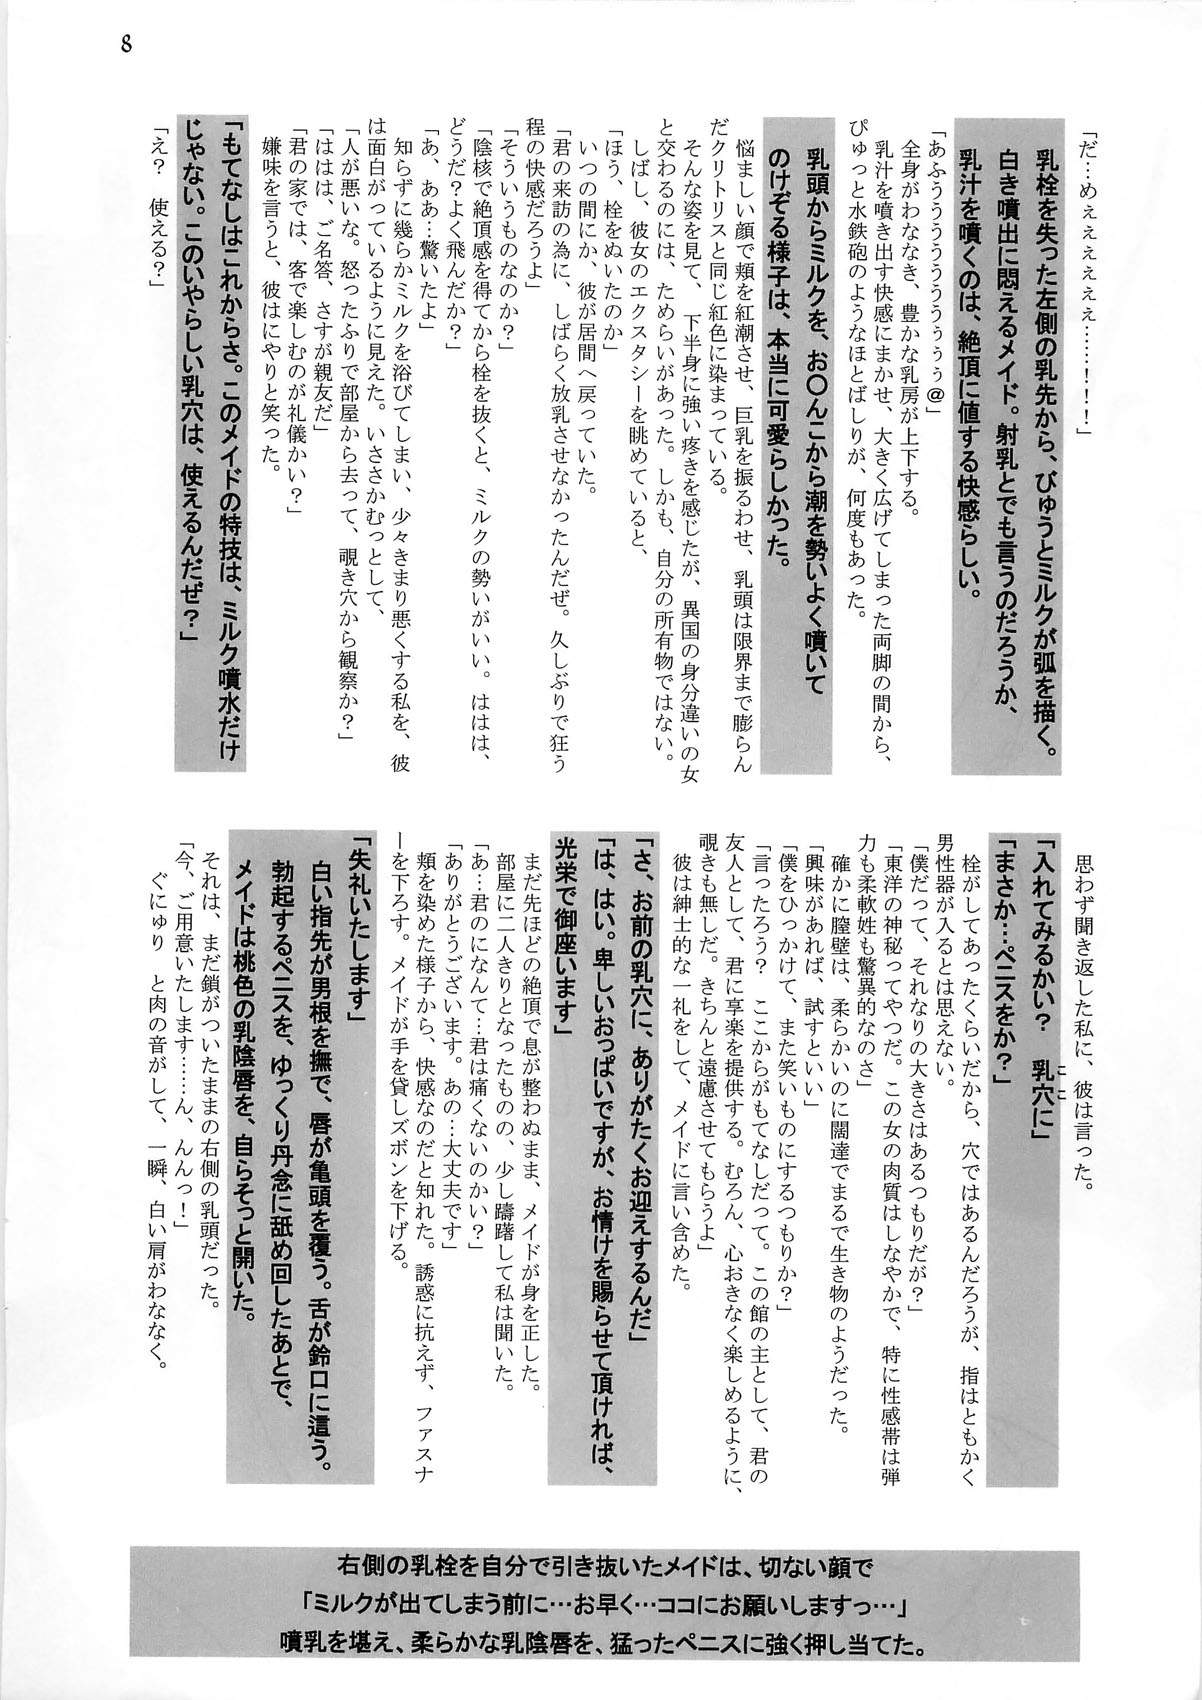 8
「だ…めぇぇぇぇぇぇ………!!!」
乳栓を失った左側の乳先から、びゅうとミルクが弧を描く。
白き噴出に悶えるメイド。射乳とでも言うのだろうか、
乳汁を噴くのは、絶頂に値する快感らしい。
全身がわななき、豊かな乳房が上下する。
乳汁を噴き出す快感にまかせ、大きく広げてしまった両脚の間から、
ぴゅっと水鉄砲のようなほとばしりが、何度もあった。
乳頭からミルクを、お〇んこから潮を勢いよく噴いて
のけぞる様子は、本当に可愛らしかった。
悩ましい顔で頬を紅潮させ、巨乳を振るわせ、乳頭は限界まで膨らん
だクリトリスと同じ紅色に染まっている。
そんな姿を見て、下半身に強い疼きを感じたが、異国の身分違いの女
と交わるのには、ためらいがあった。しかも、自分の所有物ではない。
しばし、彼女のエクスタシーを眺めていると、
「ほう、栓をぬいたのか」
いつの間にか、彼が居間へ戻っていた。
「君の来訪の為に、しばらく放乳させなかったんだぜ。久しぶりで狂う
程の快感だろうよ」
「そういうものなのか?」
「陰核で絶頂感を得てから栓を抜くと、ミルクの勢いがいい。ははは、
どうだ?よく飛んだか?」
「あ、ああ…驚いたよ」
知らずに幾らかミルクを浴びてしまい、少々きまり悪くする私を、彼
は面白がっているように見えた。いささかむっとして、
「人が悪いな。怒ったふりで部屋から去って、覗き穴から観察か?」
「ははは、ご名答、さすが親友だ」
「君の家では、客で楽しむのが礼儀かい?」
嫌味を言うと、彼はにやりと笑った。
「もてなしはこれからさ。このメイドの特技は、ミルク噴水だけ
じゃない。このいやらしい乳穴は、使えるんだぜ?」
「え?　使える?」
思わず聞き返した私に、彼は言った。
「入れてみるかい?　乳穴に」
ここ
「まさか…ペニスをか?」
栓がしてあったくらいだから、穴ではあるんだろうが、指はともかく
男性器が入るとは思えない。
「僕だって、それなりの大きさはあるつもりだが?」
「東洋の神秘ってやつだ。この女の肉質はしなやかで、特に性感帯は弾
力も柔軟姓も驚異的なのさ」
確かに膣壁は、柔らかいのに闊達でまるで生き物のようだった。
「興味があれば、試すといい」
「僕をひっかけて、また笑いものにするつもりか?」
「言ったろう?　ここからがもてなしだって。この館の主として、君の
友人として、君に享楽を提供する。むろん、心おきなく楽しめるように、
覗きも無しだ。きちんと遠慮させてもらうよ」
彼は紳士的な一礼をして、メイドに言い含めた。
「さ、お前の乳穴に、ありがたくお迎えするんだ」
「は、はい。卑しいおっぱいですが、お情けを賜らせて頂ければ、
光栄で御座います」
まだ先ほどの絶頂で息が整わぬまま、メイドが身を正した。
部屋に二人きりとなったものの、少し躊躇して私は聞いた。
「あ…君のになんて…君は痛くないのかい?」
「ありがとうございます。あの…大丈夫です」
頬を染めた様子から、快感なのだと知れた。誘惑に抗えず、ファスナ
ーを下ろす。メイドが手を貸しズボンを下げる。
「失礼いたします」
白い指先が男根を撫で、唇が亀頭を覆う。舌が鈴口に這う。
勃起するペニスを、ゆっくり丹念に舐め回したあとで、
メイドは桃色の乳陰唇を、自らそっと開いた。
それは、まだ鎖がついたままの右側の乳頭だった。
「今、ご用意いたします……ん、んんっ!」
ぐにゅり　と肉の音がして、一瞬、白い肩がわななく。
右側の乳栓を自分で引き抜いたメイドは、切ない顔で
「ミルクが出てしまう前に…お早く…ココにお願いしますっ…」
噴乳を堪え、柔らかな乳陰唇を、猛ったペニスに強く押し当てた。